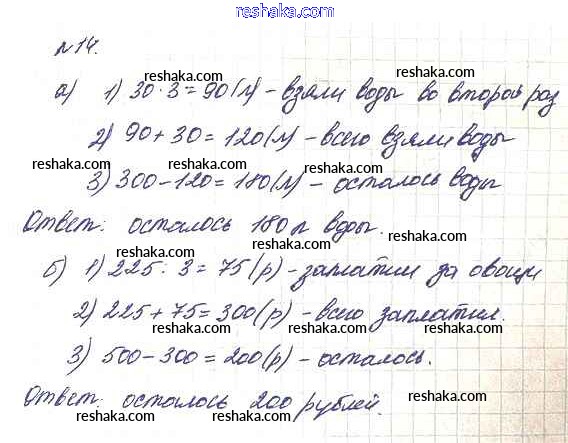 reshaka.com
№14.
reshaka.com
а) 1) 30·3=90(л) - взяли воды во второй раз
reshaka.com reshaka.com
2) 90+30=120(л) - всего взяли воды
reshaka.com reshaka.com
3) 300-120=180(л) - осталось воды
reshaka.com
Ответ: осталось 180 л воды.
reshaka.com reshaka.com
б) 1) 225:3=75(р) - заплатил за овощи
reshaka.com
2) 225+75=300(р) - всего заплатил.
reshaka.com reshaka.com
3) 500-300=200(р) - осталось.
reshaka.com
Ответ: осталось 200 рублей.
reshaka.com reshaka.com
reshaka.com